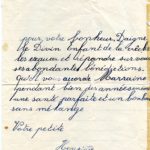 pour votre bonheur, Daigne
le Divin Enfant de la Crèche
les exaucer et répandre sur vous
ses abondantes bénédictions,
qu'il vous accorde Marraine
pendant bien des années encore
une santé parfaite et un bonheur
sans mélange
Votre petite